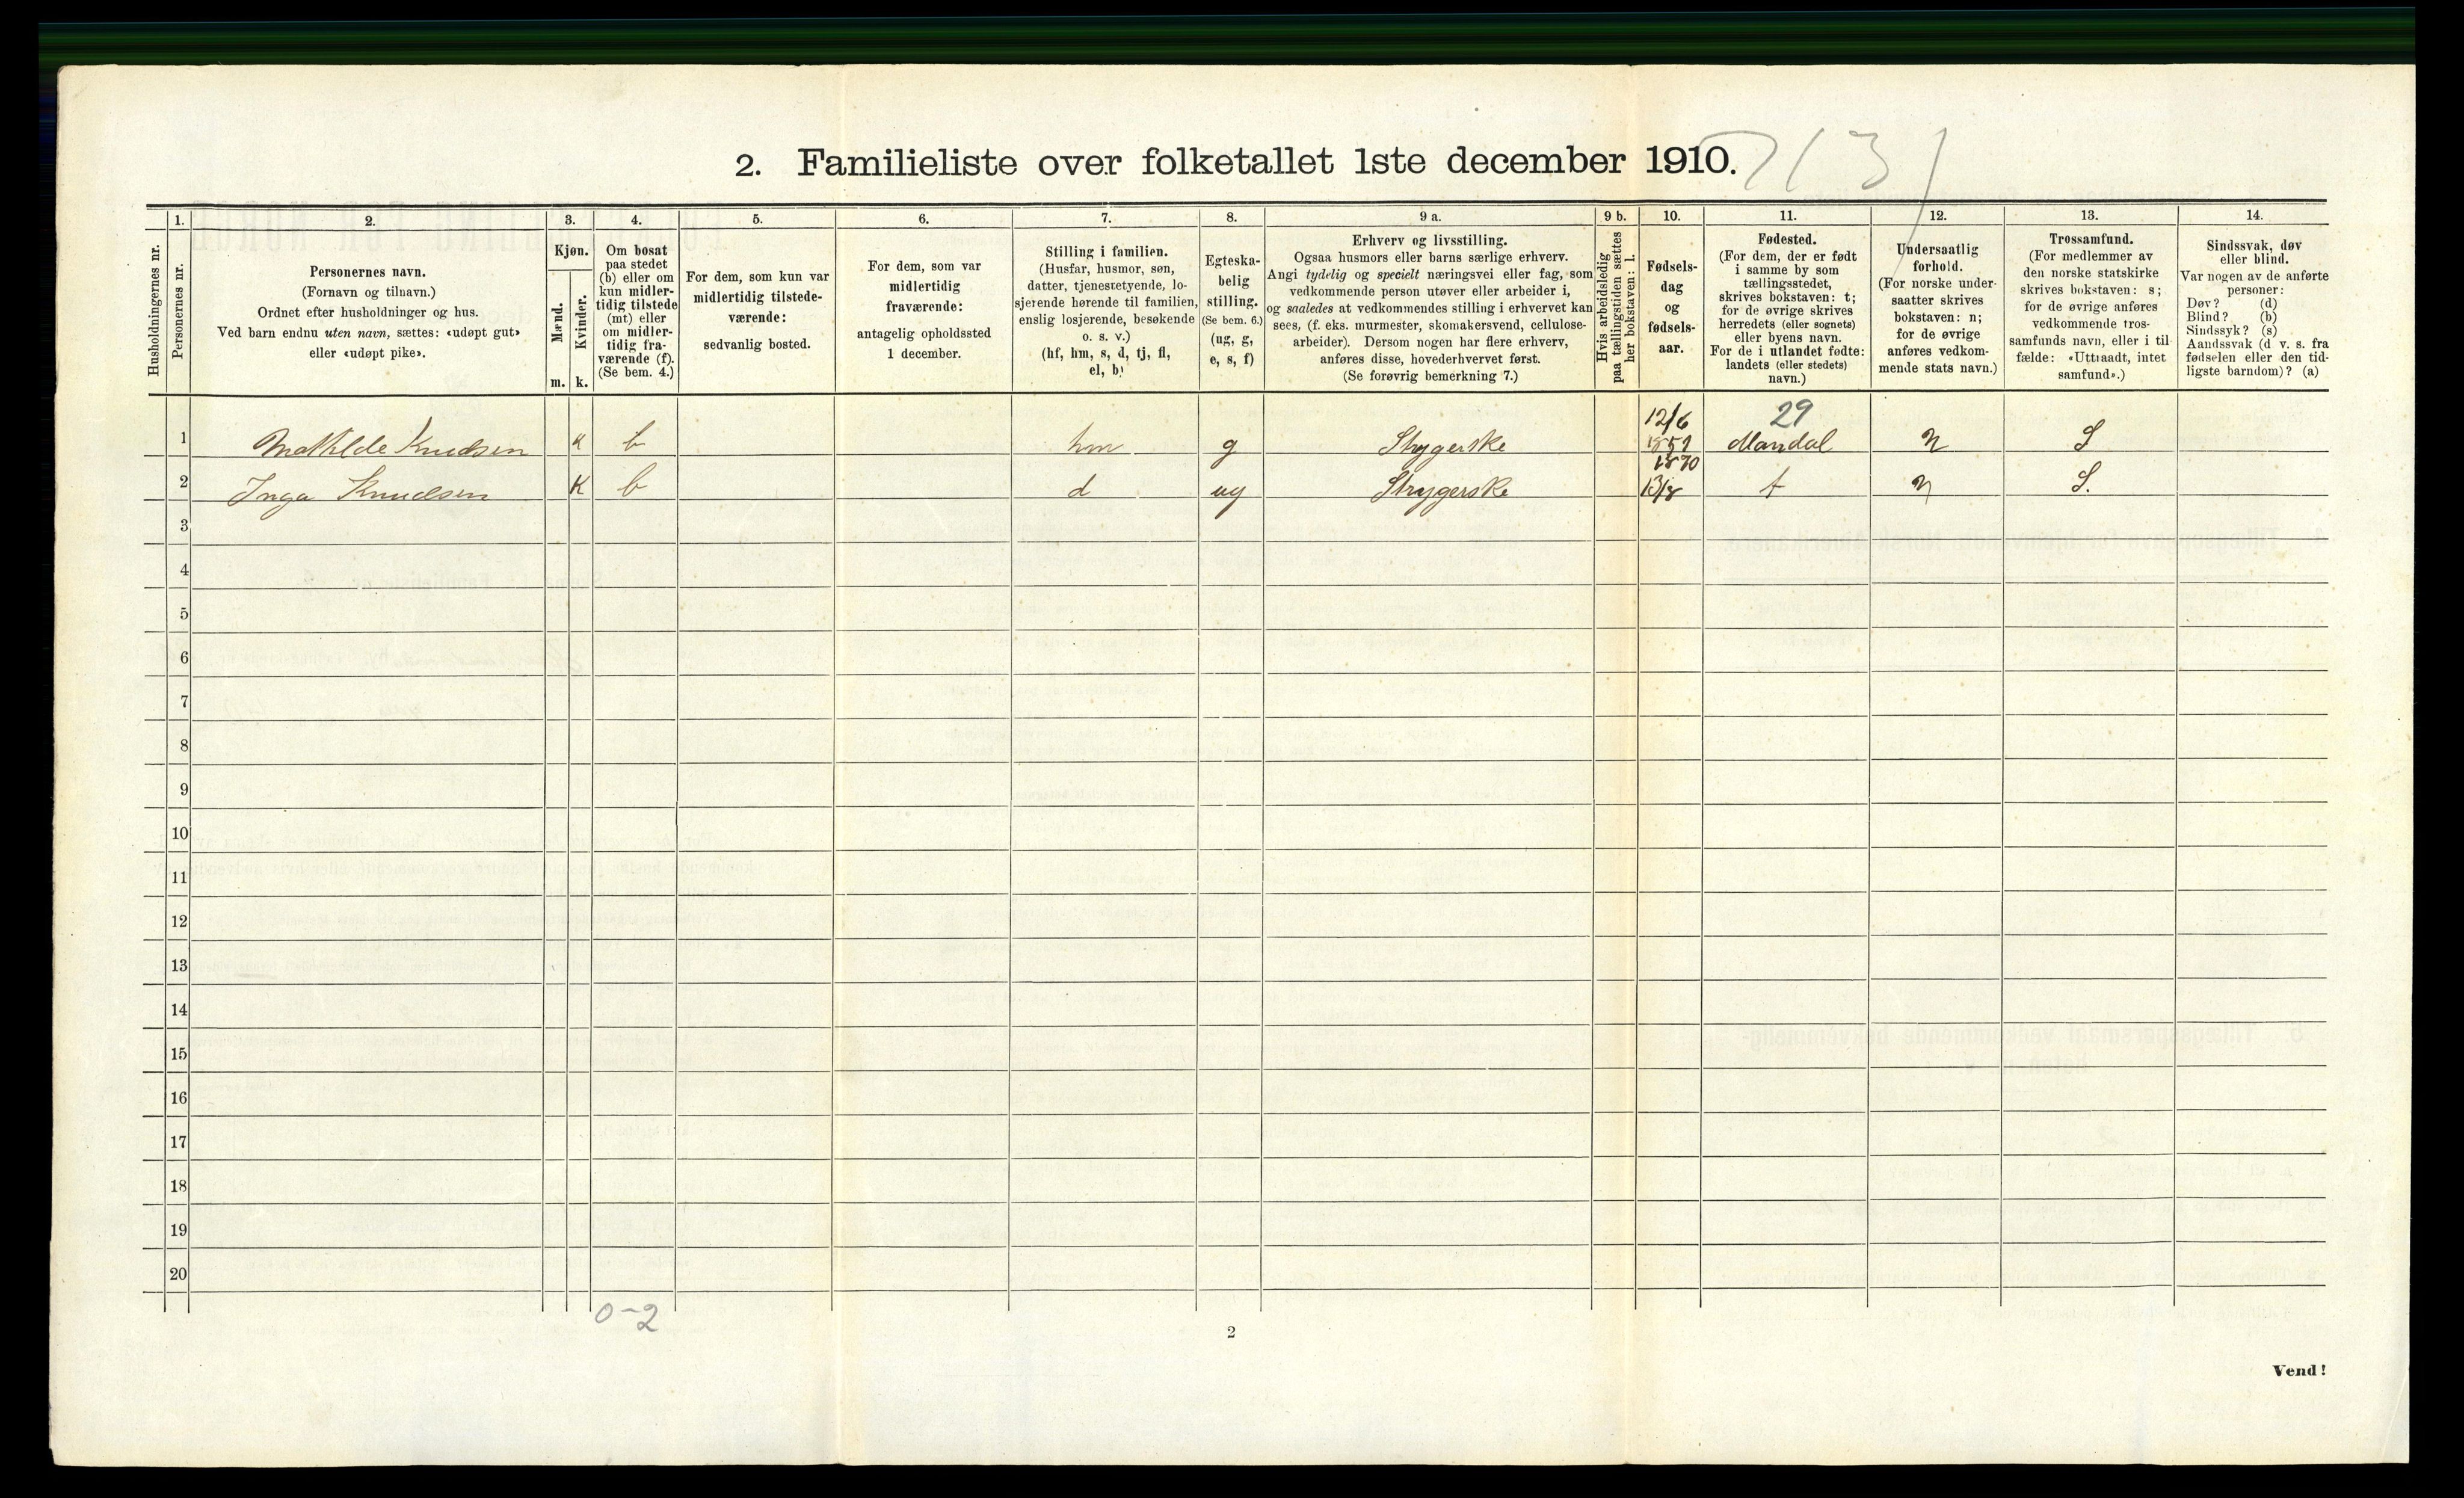 2. Familieliste over folketallet 1ste december 1910.
Husholdningernes nr.
1.
Personernes nr.
2.
Personernes navn.
(Fornavn og tilnavn.)
Ordnet efter husholdninger og hus.
Ved barn endnu uten navn, sættes: «udøpt gut»
eller «udøpt pike».
3.
Kjøn.
Mænd.
Kvinder.
m. k.
4.
Om bosat
paa stedet
(b) eller om
kun midler-
tidig tilstede
(mt) eller
om midler-
tidig fra-
værende (f).
(Se bem. 4.)
5.
For dem, som kun var
midlertidig tilstede-
værende:
sedvanlig bosted.
6.
For dem, som var
midlertidig
fraværende:
antagelig opholdssted
1 december.
7.
Stilling i familien.
(Husfar, husmor, søn,
datter, tjenestetyende, lo-
sjerende hørende til familien,
enslig losjerende, besøkende
o. s. v.)
(hf, hm, s, d, tj, fl,
el, b)
8.
Egteska-
belig
stilling.
(Se bem. 6.)
(ug, g,
e, s, f)
9 a.
Erhverv og livsstilling.
Ogsaa husmors eller barns særlige erhverv.
Angi tydelig og specielt næringsvei eller fag, som
vedkommende person utøver eller arbeider i,
og saaledes at vedkommendes stilling i erhvervet kan
sees, (f. eks. murmester, skomakersvend, cellulose-
arbeider). Dersom nogen har flere erhverv,
anføres disse, hovederhvervet først.
(Se forøvrig bemerkning 7.)
9 b.
Hvis arbeidsledig
paa tællingstiden sættes
her bokstaven: l.
10.
Fødsels-
dag
og
fødsels-
aar.
11.
Fødested.
(For dem, der er født
i samme by som
tællingsstedet,
skrives bokstaven: t;
for de øvrige skrives
herredets (eller sognets)
eller byens navn.
For de i utlandet fødte:
landets (eller stedets)
navn.)
12.
Undersaatlig
forhold.
(For norske under-
saatter skrives
bokstaven: n;
for de øvrige
anføres vedkom-
mende stats navn.)
13.
Trossamfund.
(For medlemmer av
den norske statskirke
skrives bokstaven: s;
for de øvrige anføres
vedkommende tros-
samfunds navn, eller i til-
fælde: «Uttraadt, intet
samfund».)
14.
Sindssvak, døv
eller blind.
Var nogen av de anførte
personer:
Døv? (d)
Blind? (b)
Sindssyk? (s)
Aandssvak (d. v. s. fra
fødselen eller den tid-
ligste barndom)? (a)
12/6 29
1 Mathilde Knudsen K b hm g Strygerske Mandal n S
2 Inga Knudsen K b d ug Strygerske 13/8 t n S.
3
4
5
6
7
8
9
10
11
12
13
14
15
16
17
18
19
20
0-2
2
Vend!